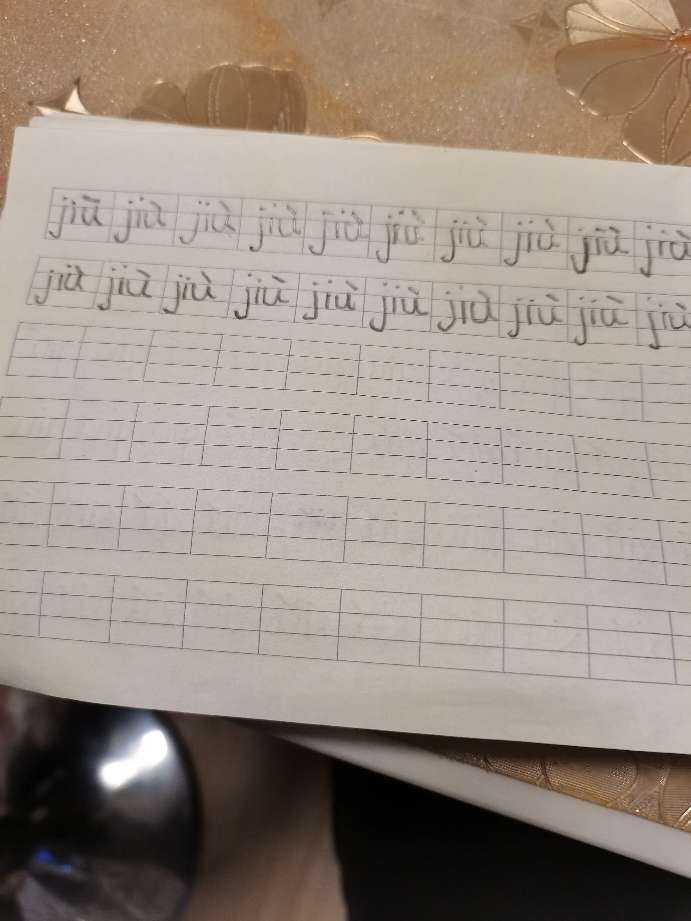 jiù jiù jiù jiù jiù jiù jiù jiù jiù jiù
jiù jiù jiù jiù jiù jiù jiù jiù jiù jiù